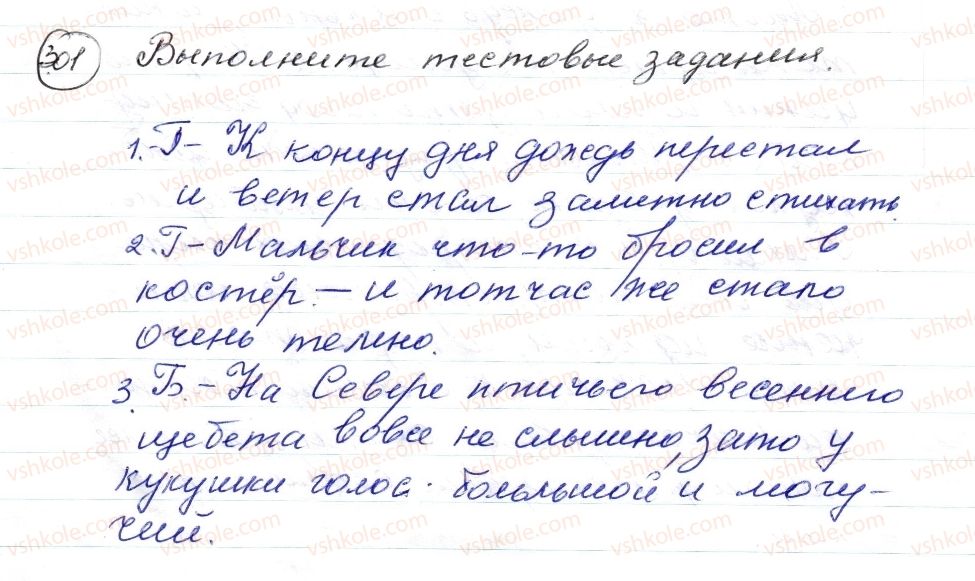 301 Выполните тестовые задания.
1.-Г- К концу дня дождь перестал
и ветер стал заметно стихать.
2.Г-Мальчик что-то бросил в
костёр - и тотчас же стало
очень темно.
3.Б.-На Севере птичьего весеннего
щебета вовсе не слышно, зато у
кукушки голос большой и могу-
чий.